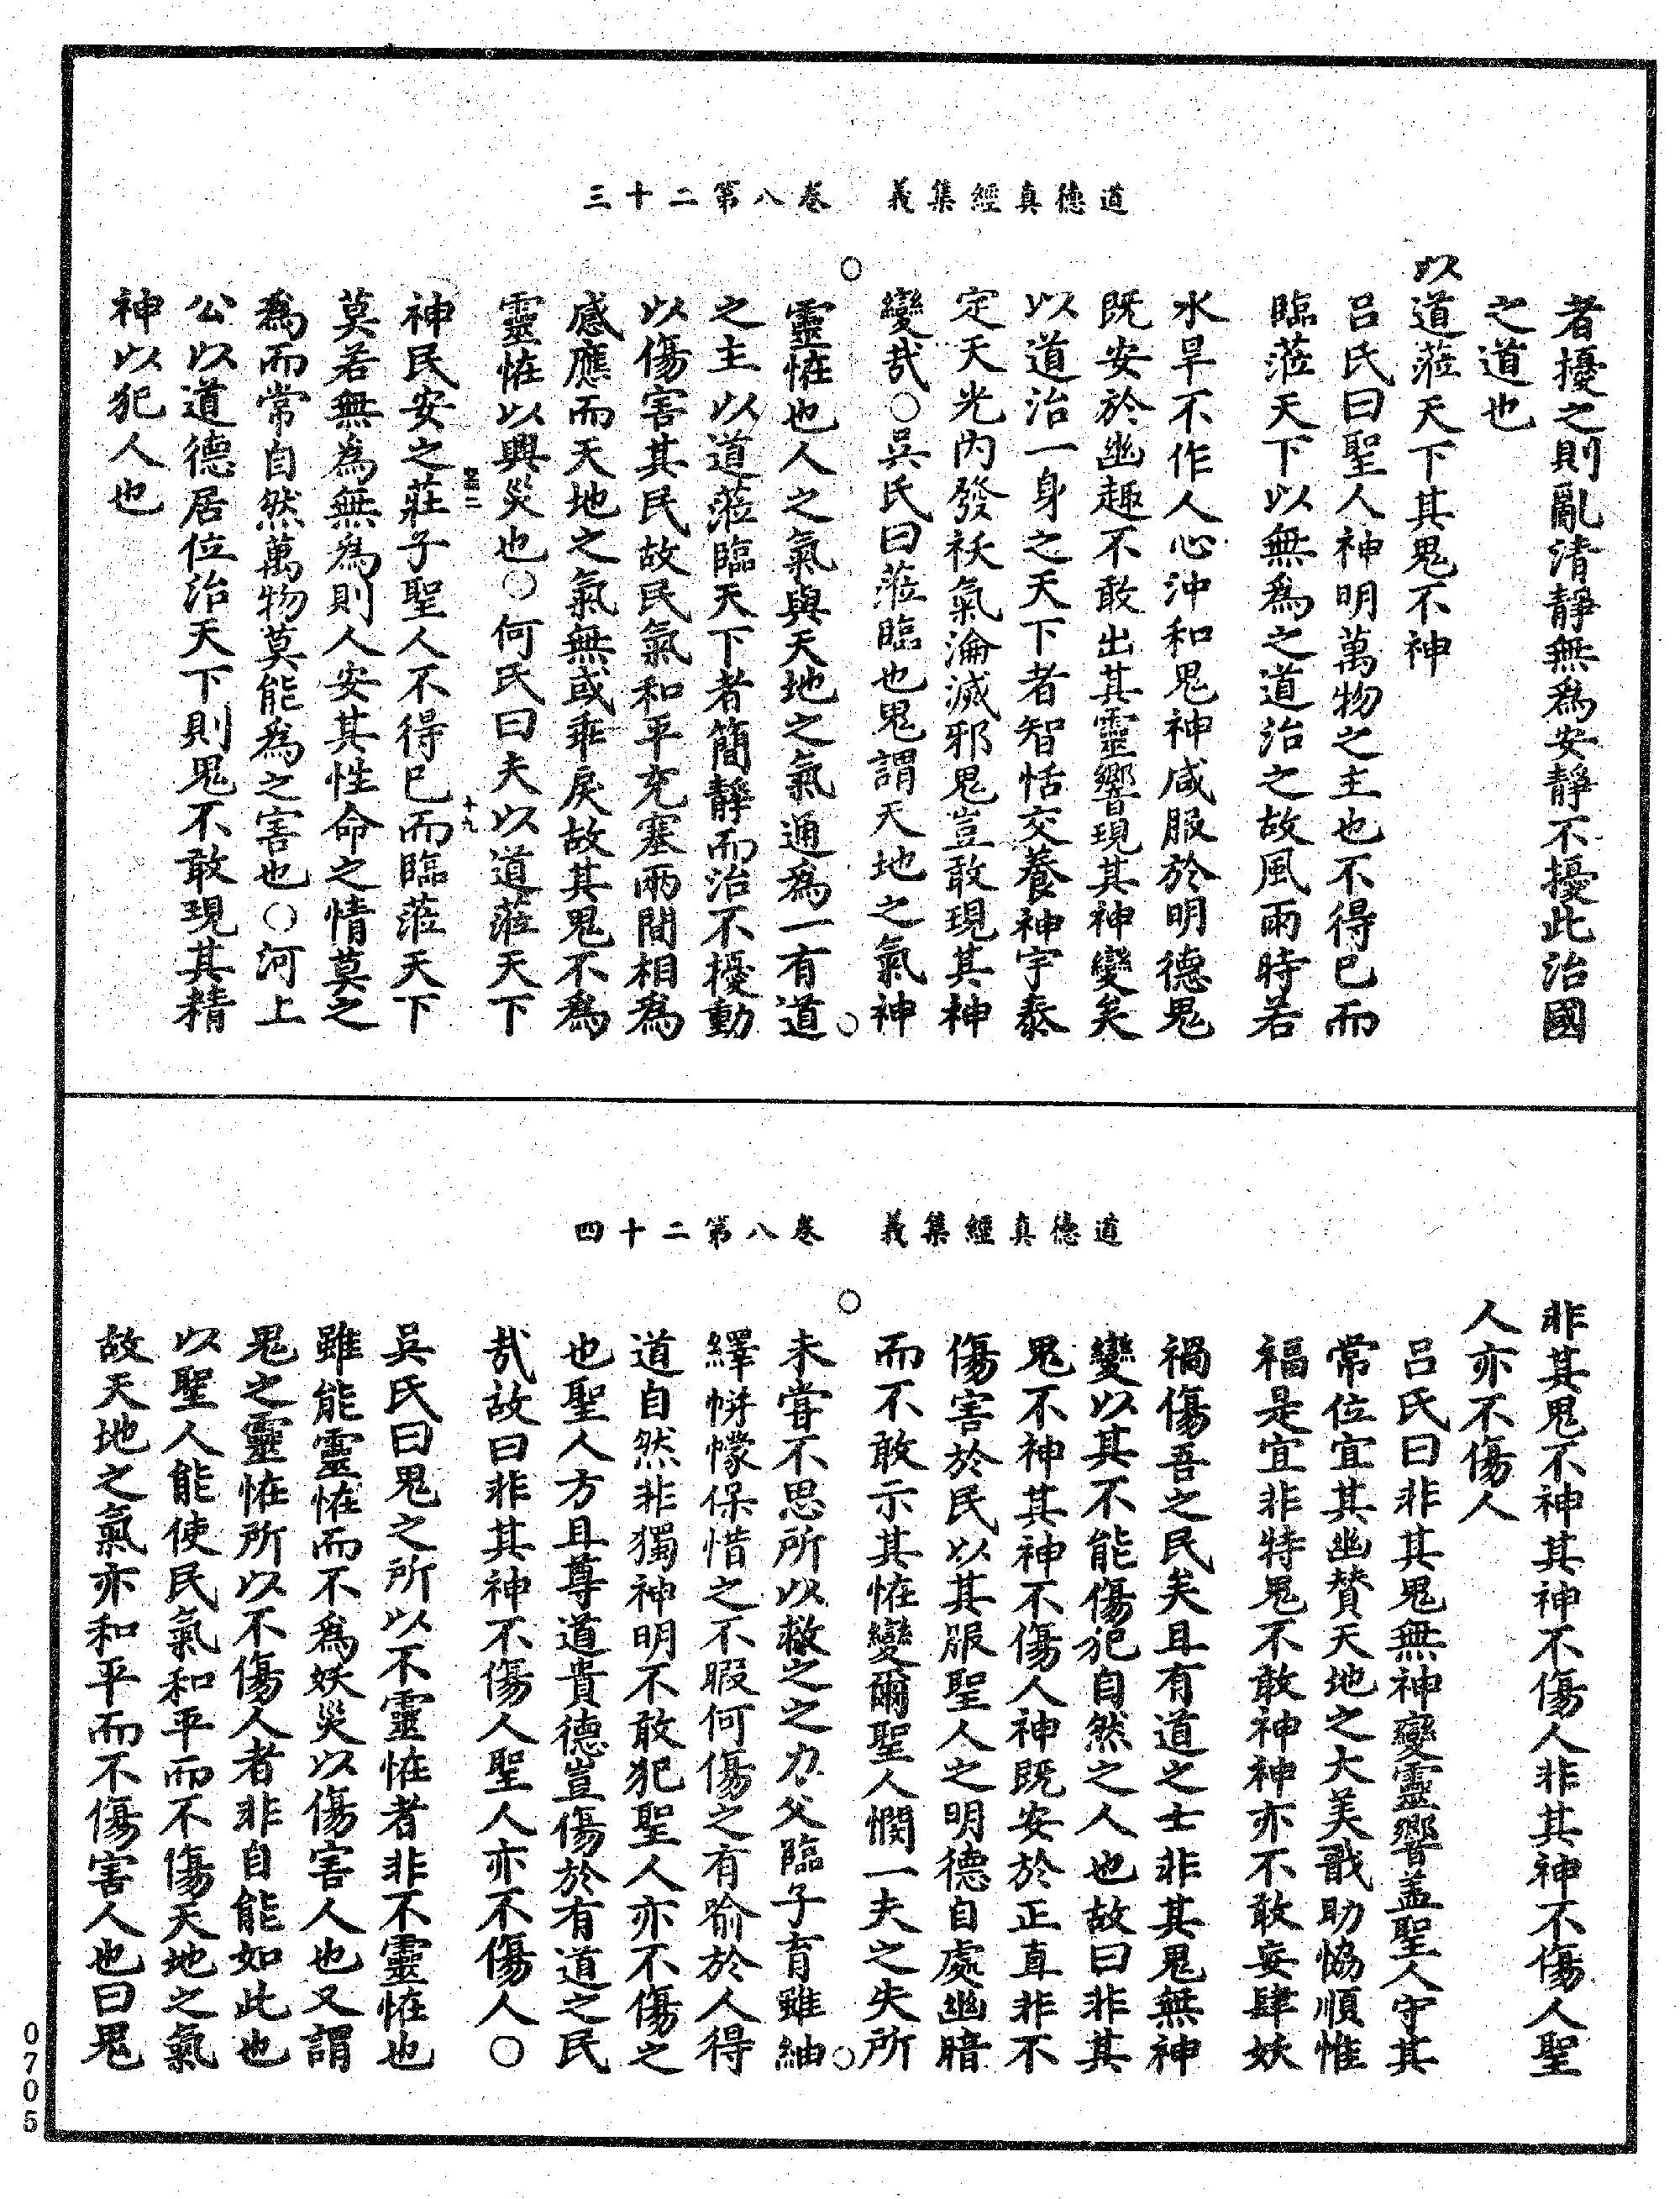 道德真經集義　卷八第二十三
者擾之則亂清靜無為安靜不擾此治國
之道也
以道莅天下其鬼不神
呂氏曰聖人神明萬物之主也不得已而
臨莅天下以無為之道治之故風雨時若
水旱不作人心沖和鬼神咸服於明德鬼
既安於幽趣不敢出其靈響現其神變矣
以道治一身之天下者智恬交養神宇泰
定天光內發祅氣淪滅邪鬼豈敢現其神
變哉○吳氏曰莅臨也鬼謂天地之氣神
靈恠也人之氣與天地之氣通為一有道
之主以道莅臨天下者簡靜而治不擾動
以傷害其民故民氣和平充塞兩間相為
感應而天地之氣無或乖戾故其鬼不為
靈恠以興災也○何氏曰夫以道莅天下
神民安之莊子聖人不得已而臨莅天下
十九
莫若無為無為則人安其性命之情莫之
為而常自然萬物莫能為之害也○河上
公以道德居位治天下則鬼不敢現其精
神以犯人也
道德真經集義　卷八第二十四
非其鬼不神其神不傷人非其神不傷人聖
人亦不傷人
呂氏曰非其鬼無神變靈響盖聖人守其
常位宜其幽贊天地之大美戬助恊順惟
福是宜非特鬼不敢神神亦不敢妄肆妖
禍傷吾之民矣且有道之士非其鬼無神
變以其不能傷犯自然之人也故曰非其
鬼不神其神不傷人神既安於正直非不
傷害於民以其服聖人之明德自處幽暗
而不敢示其恠變爾聖人憫一夫之失所
未嘗不思所以救之之力父臨子育雖紬
繹帡幪保惜之不暇何傷之有喻於人得
道自然非獨神明不敢犯聖人亦不傷之
也聖人方且尊道貴德豈傷於有道之民
哉故曰非其神不傷人聖人亦不傷人○
吳氏曰鬼之所以不靈恠者非不靈恠也
雖能靈恠而不為妖災以傷害人也又謂
鬼之靈恠所以不傷人者非自能如此也
以聖人能使民氣和平而不傷天地之氣
故天地之氣亦和平而不傷害人也曰鬼
0705